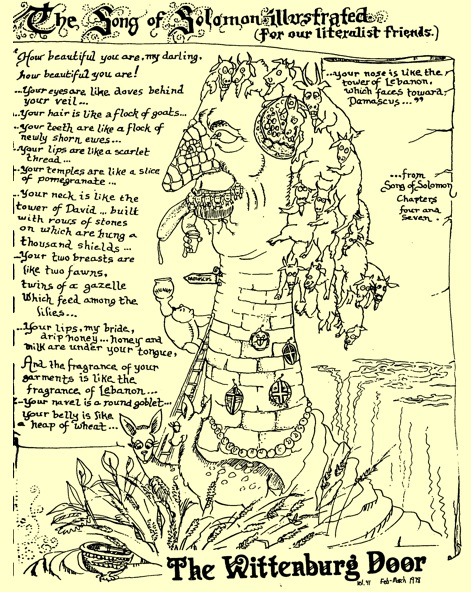 The Song of Solomon illustrated
(for our literalist friends.)
"How beautiful you are, my darling,
how beautiful you are!
...Your eyes are like doves behind
your veil...
...Your hair is like a flock of goats...
...your teeth are like a flock of
newly shorn ewes...
...Your lips are like a scarlet
thread...
...Your temples are like a slice
of pomegranate...
...Your neck is like the
tower of David ... built
with rows of stones
on which are hung a
thousand shields...
...Your two breasts are
like two fawns,
twins of a gazelle
Which feed among the
lilies...
...Your lips, my bride,
drip honey... honey and
milk are under your tongue,
And the fragrance of your
garments is like the
fragrance of Lebanon...
...Your navel is a round goblet...
Your belly is like
a heap of wheat...
...your nose is like the
tower of Lebanon,
which faces toward
Damascus..."
...from
Song of Solomon
Chapters
four and
seven.
HONEY
DAMASCUS
The Wittenburg Door
Vol. 41 Feb-March 1978